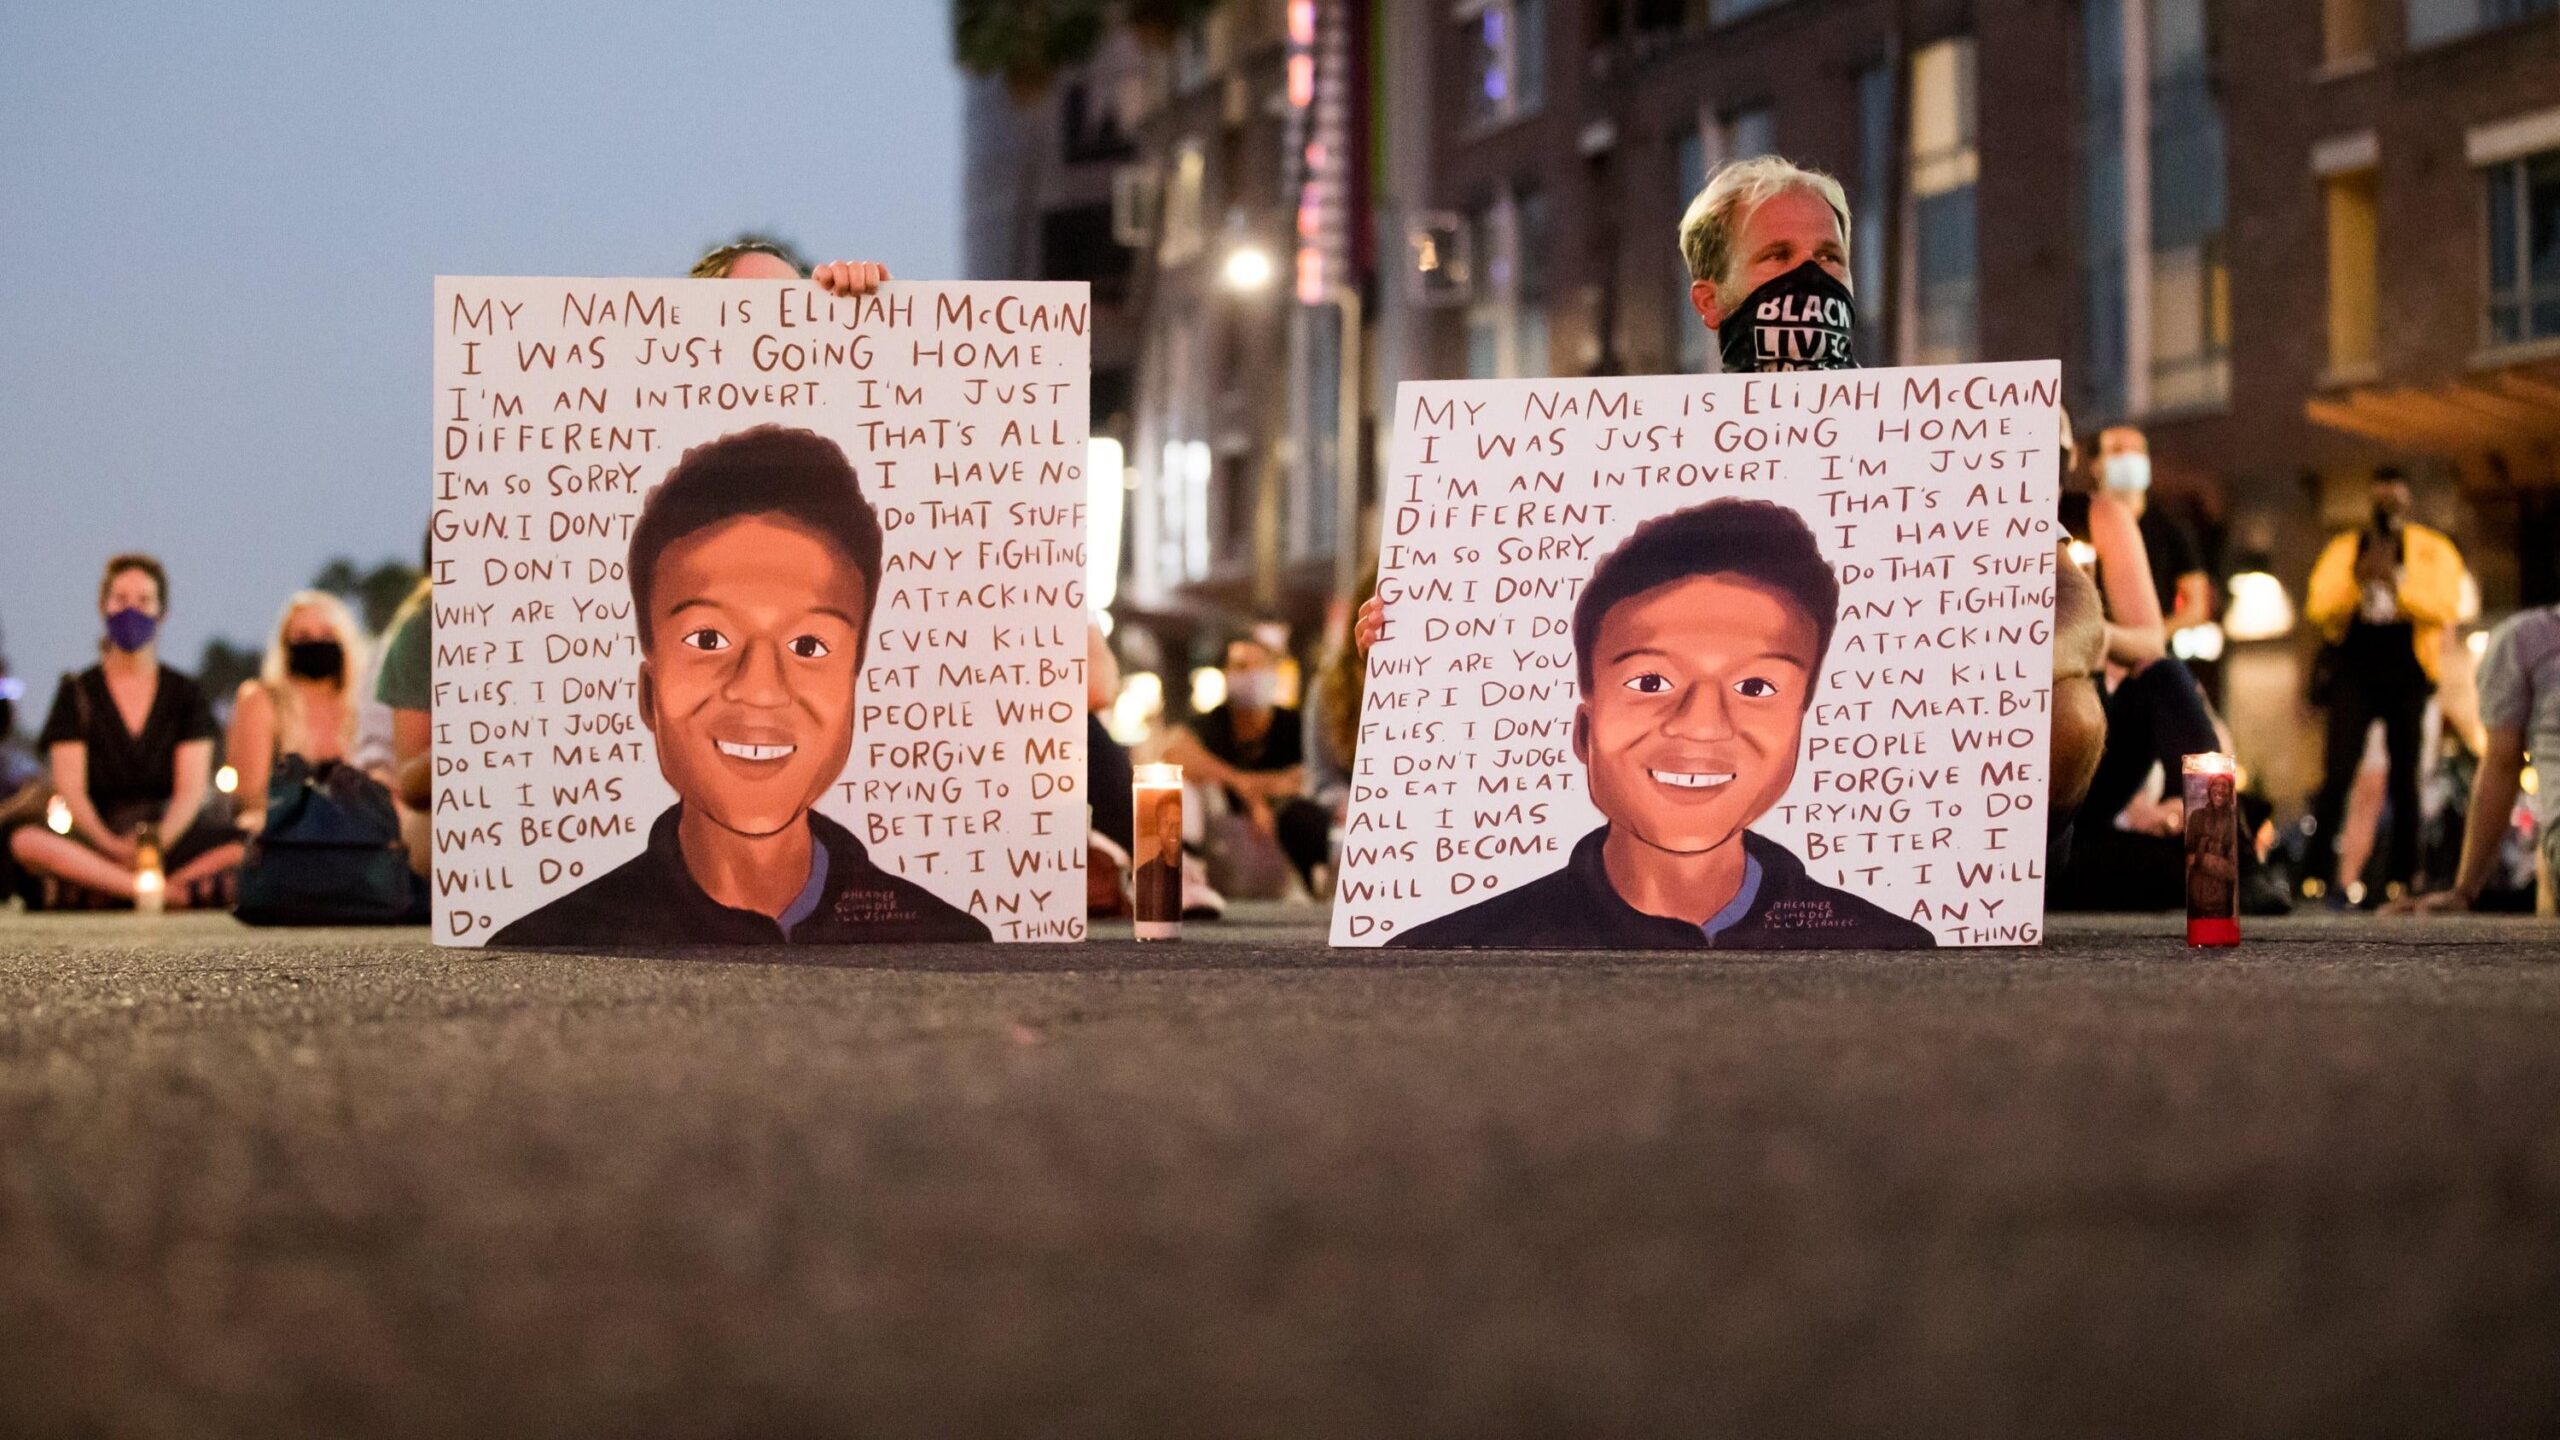 MY NAME IS ELIJAH McCLAIN.
I WAS JUST GOING HOME.
I'M AN INTROVERT. I'M JUST
DIFFERENT. THAT'S ALL.
I'M SO SORRY. I HAVE NO
GUN. I DON'T DO THAT STUFF.
I DON'T DO ANY FIGHTING
WHY ARE YOU ATTACKING
ME? I DON'T EVEN KILL
FLIES. I DON'T EAT MEAT. BUT
I DON'T JUDGE PEOPLE WHO
DO EAT MEAT. FORGIVE ME.
ALL I WAS TRYING TO DO
WAS BECOME BETTER. I
WILL DO IT. I WILL
DO ANY
THING
@HEATHER
SCHIEDER
ILLUSTRATES
BLACK
LIVES
MY NAME IS ELIJAH McCLAIN
I WAS JUST GOING HOME.
I'M AN INTROVERT. I'M JUST
DIFFERENT. THAT'S ALL.
I'M SO SORRY. I HAVE NO
GUN. I DON'T DO THAT STUFF.
I DON'T DO ANY FIGHTING
WHY ARE YOU ATTACKING
ME? I DON'T EVEN KILL
FLIES. I DON'T EAT MEAT. BUT
I DON'T JUDGE PEOPLE WHO
DO EAT MEAT. FORGIVE ME.
ALL I WAS TRYING TO DO
WAS BECOME BETTER. I
WILL DO IT. I WILL
DO ANY
THING